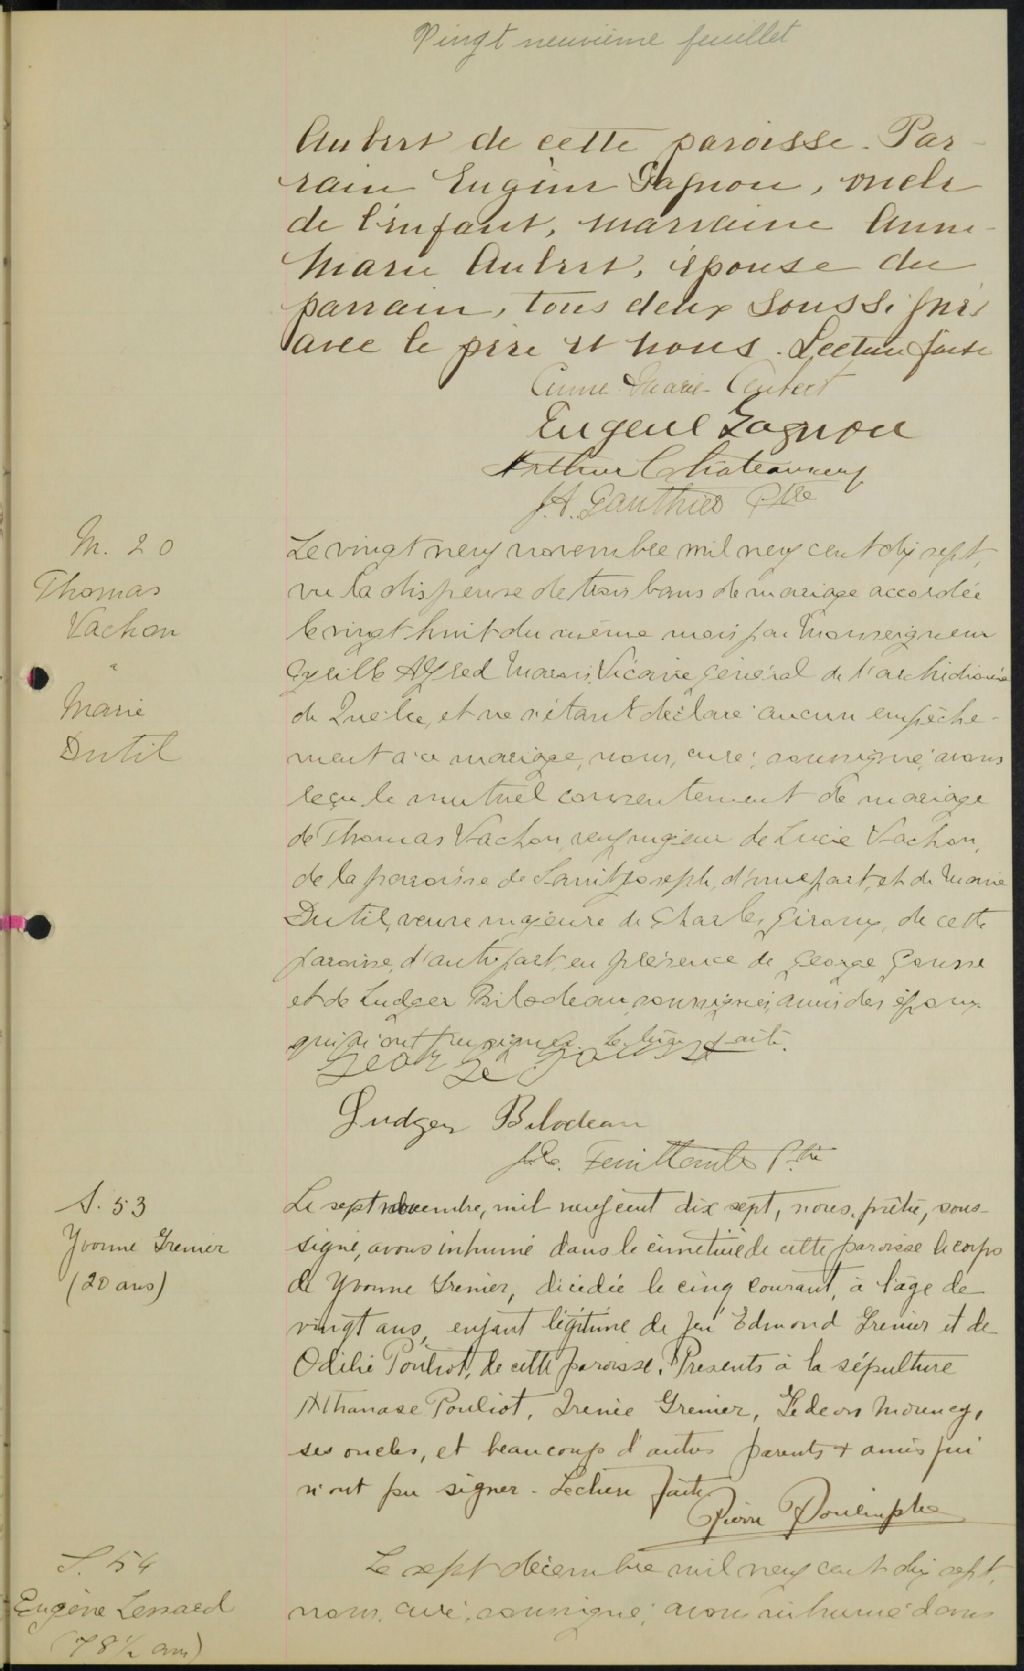 Vingt neuvième feuillet
Aubert de cette paroisse. Par-
rain Eugène Gagnon, oncle
de l'enfant, marraine Anne-
Marie Aubert, épouse du
parrain, tous deux soussignés
avec le père et nous. Lecture faite
Anne-Marie Aubert
Eugene Gagnon
Arthur Chateauneuf
J.A. Gauthier Ptre
M. 20
Thomas
Vachon
"
Marie
Dutil
Le vingt neuf novembre mil neuf cent dix sept,
vu la dispense de trois bans de mariage accordée
le vingt-huit du même mois par Monseigneur
Cyrille Alfred Marois, Vicaire Général de l'archidiocèse
de Québec, et ne s'étant déclaré aucun empêche-
ment à ce mariage, nous, curé, soussigné, avons
reçu le mutuel consentement de mariage
de Thomas Vachon, veuf majeur de Lucie Vachon,
de la paroisse de Saint Joseph, d'une part, et de Marie
Dutil, veuve majeure de Charles Giroux, de cette
paroisse, d'autre part, en présence de George Gousse
et de Ludger Bilodeau, soussignés, amis des époux
qui n'ont pu signer. Lecture faite.
George Gousse
Ludger Bilodeau
Feuiltault Ptre
S. 53
Yvonne Grenier
(20 ans)
Le sept novembre, mil neuf cent dix sept, nous, prêtre, sous-
signé, avons inhumé dans le cimetière de cette paroisse le corps
de Yvonne Grenier, décédée le cinq courant, à l'âge de
vingt ans, enfant légitime de feu Edmond Grenier et de
Odilie Pouliot, de cette paroisse. Présents à la sépulture
Athanase Pouliot, Irenée Grenier, Gédeon Mouney,
ses oncles, et beaucoup d'autres parents & amis qui
n'ont pu signer. Lecture faite.
Pierre Poulin ptre
S. 54
Eugène Lessard
(78 ½ ans)
Le sept décembre mil neuf cent dix sept,
nous, curé, soussigné, avons inhumé dans